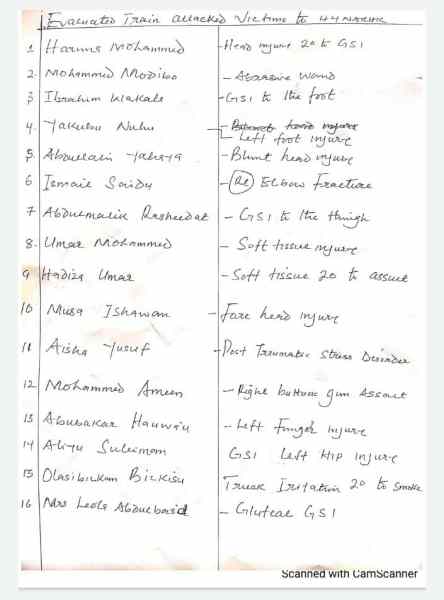 Evacuated Train attacked Victims to 44 NARHK
1 Haruna Mohammed - Head injure 20 to GSI
2. Mohammed Modibo - Abrasive wond
3 Ibrahim Wakala - GSI to the foot
4. Yakubu Nuhu - Blunt head injure
- Left foot injure
5. Abdullahi Yahaya - Blunt head injure
6 Ismail Saidu - (Rt) Elbow Fracture
7 Abdulmalik Rasheedat - GSI to the thigh
8. Umar Mohammed - Soft tissue injure
9 Hadiza Umar - Soft tissue 20 to assault
10 Musa Ishawan - Fore head injure
11 Aisha Yusuf - Post Traumatic Stress Disorder
12 Mohammed Ameen - Right buttock gun Assault
13 Abubakar Hauwau - Left Finger injure
14 Aliyu Suleiman GSI Left Hip injure
15 Olasibikan Bickisu Irritation 20 to smoke
16 Mrs Abdulbasid - Gluteal GSI
Scanned with CamScanner